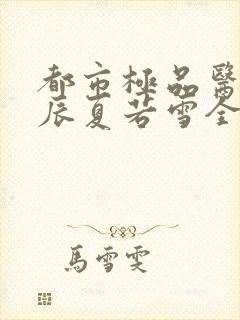 都市極品醫
辰夏若雪全
馬雪雯